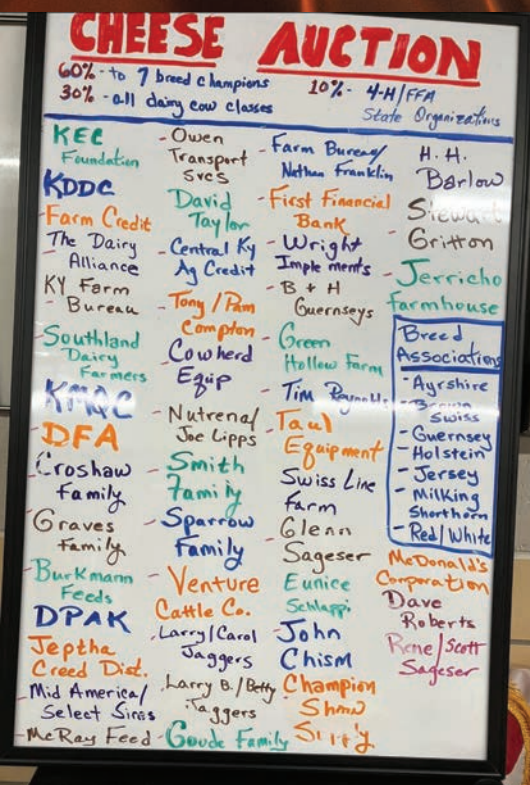 CHEESE AUCTION
60% - to 7 breed champions
30% - all dairy cow classes
10% - 4-H/FFA
State Organizations
KEC
Foundation
KDDC
- Farm Credit
- The Dairy
Alliance
KY Farm
- Bureau
- Southland
Dairy
Farmers
KMQC
- DFA
- Croshaw
Family
- Graves
Family
- Burkmann
Feeds
DPAK
Jeptha
Creed Dist.
- Mid America/
Select Sires
- McRay Feed
- Owen
Transport
Svcs
David
Taylor
- Central Ky
Ag Credit
- Tony/Pam
Compton
- Cowherd
Equip
- Nutrena/
Joe Lipps
- Smith
Family
- Sparrow
Family
- Venture
Cattle Co.
- Larry/Carol
Jaggers
- Larry B./Betty
Jaggers
- Goode Family
- Farm Bureau/
Nathan Franklin
- First Financial
Bank
- Wright
Implements
- B + H
Guernseys
- Green
Hollow Farm
- Tim Reynolds
- Taul
Equipment
Swiss Line
Farm
- Glenn
Sageser
Eunice
Schlappi
- John
Chism
Champion
Show
H. H.
Barlow
Stewart
Gritton
- Jerricho
Farmhouse
Breed
Associations
- Ayrshire
- Brown
Swiss
- Guernsey
- Holstein
- Jersey
- Milking
Shorthorn
- Red/White
McDonald's
Corporation
Dave
Roberts
Rene/Scott
Sageser